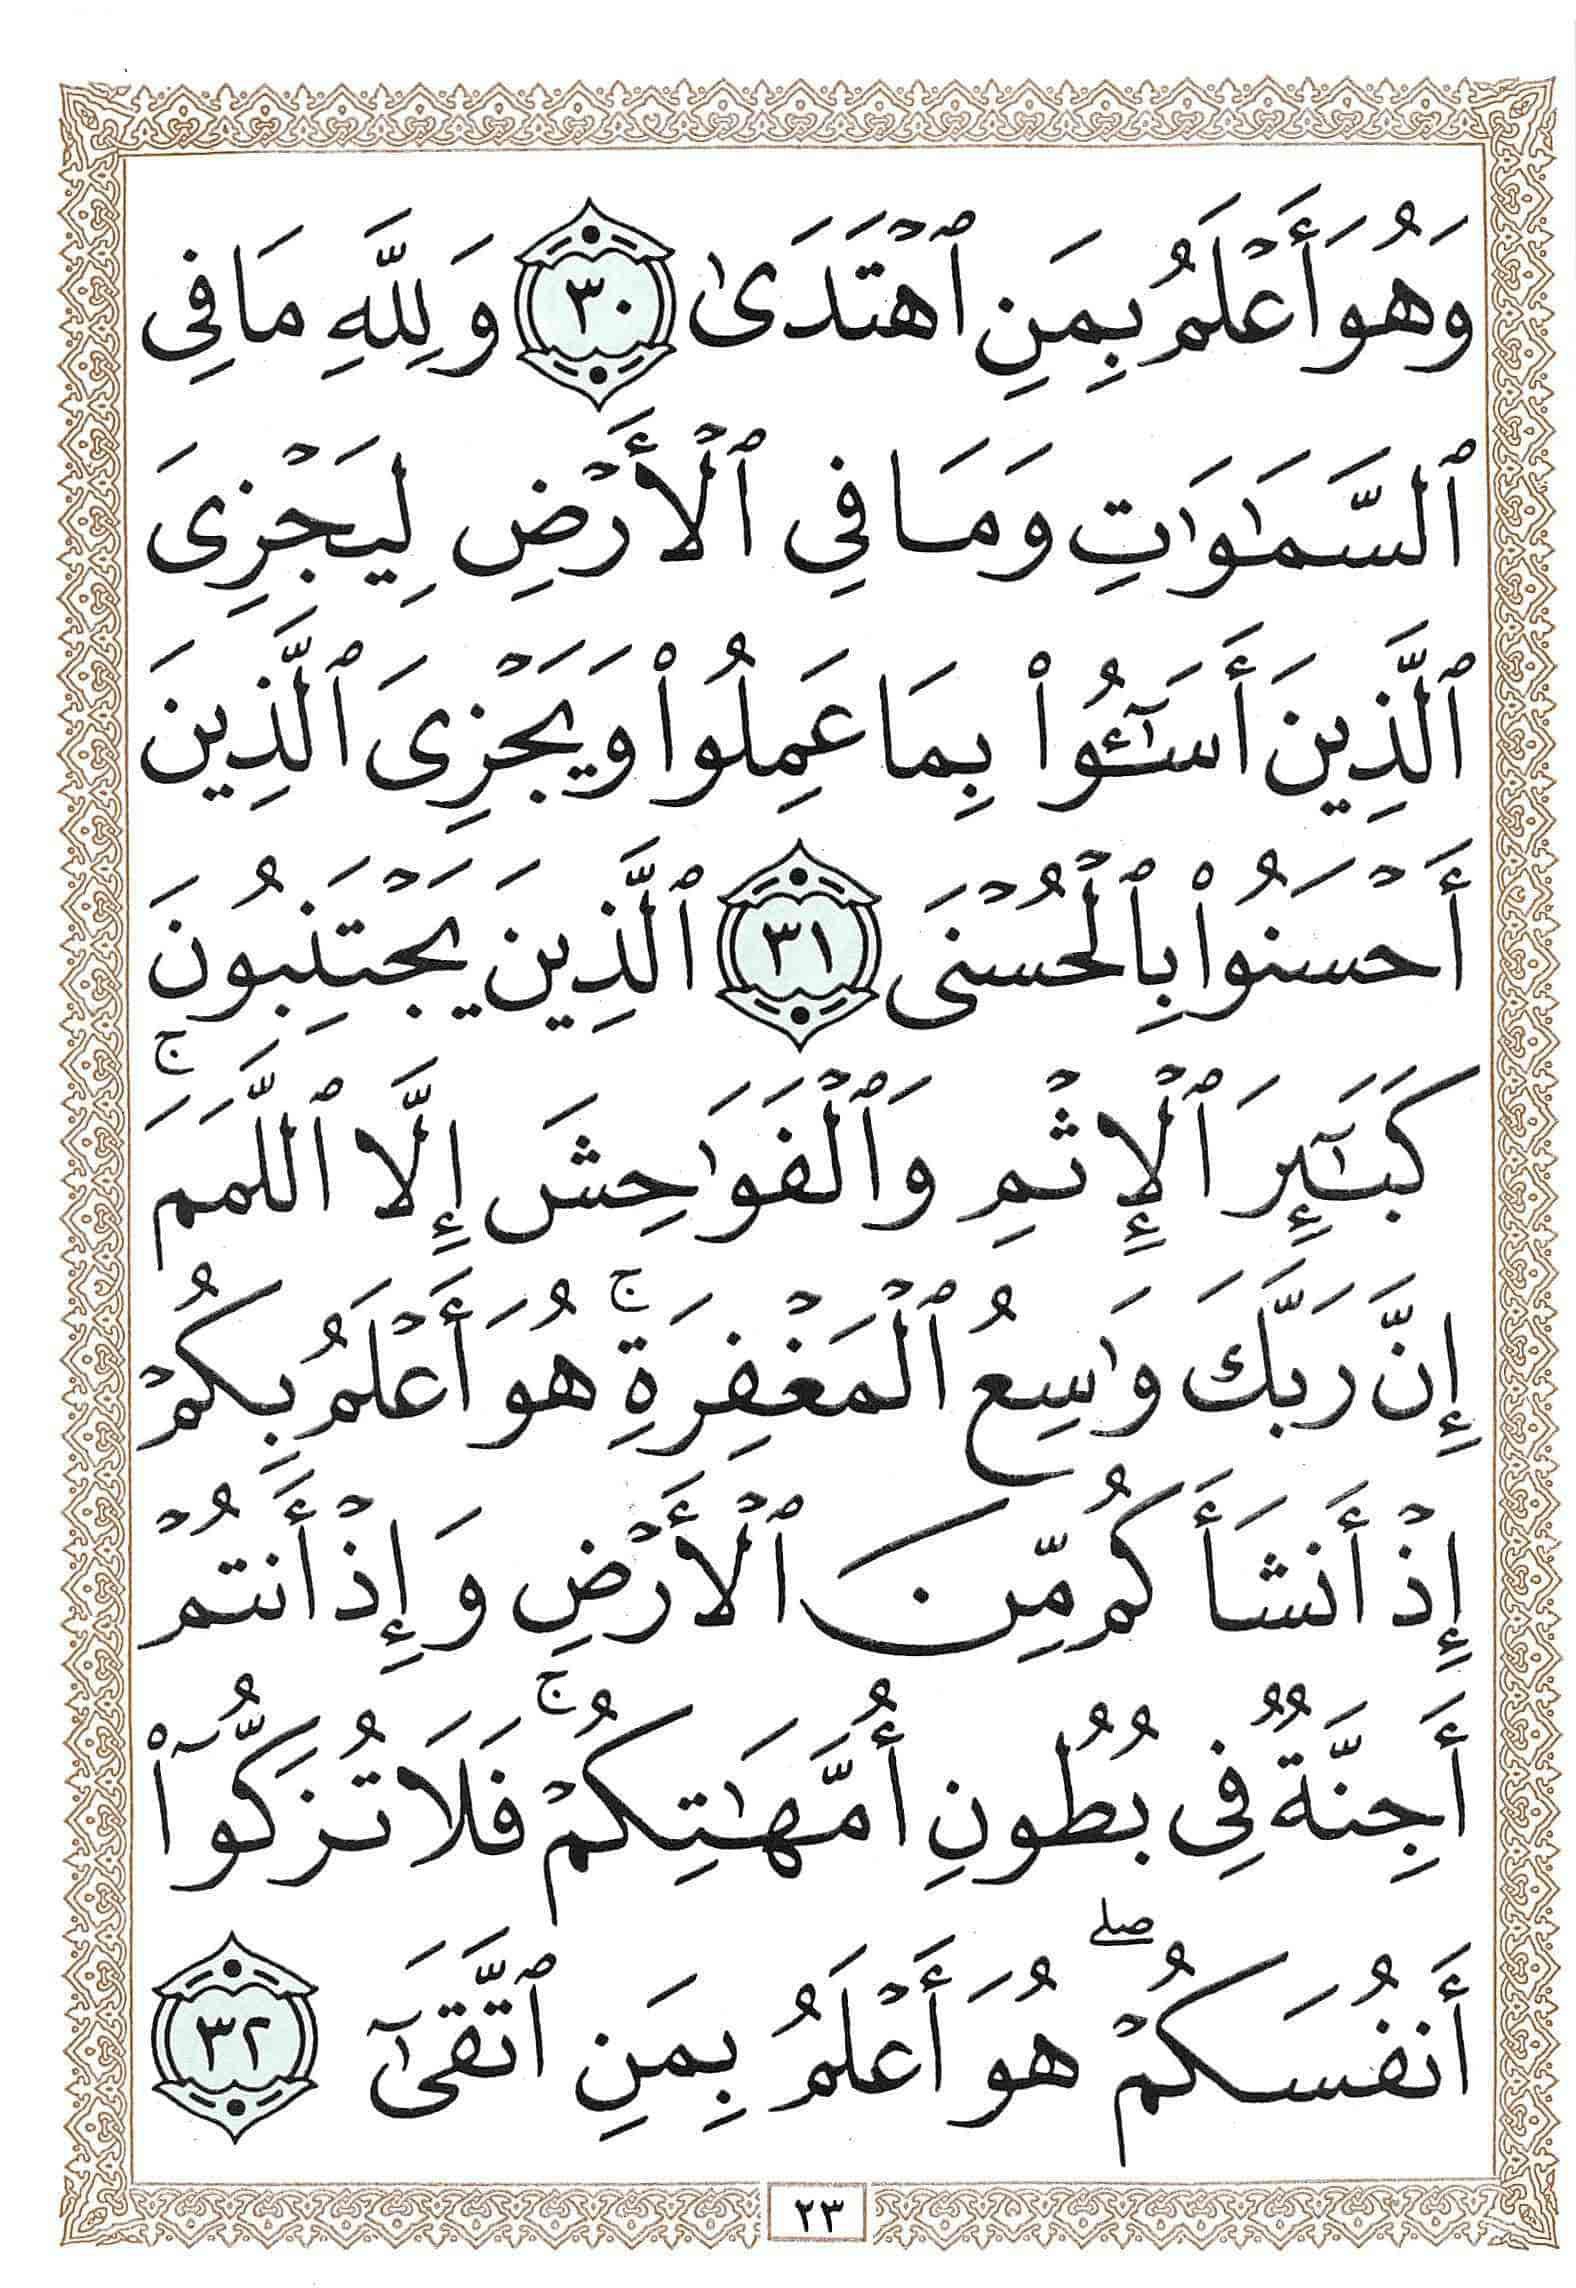 وَهُوَ أَعْلَمُ بِمَنِ ٱهْتَدَىٰ ٣٠ وَلِلَّهِ مَا فِى
ٱلسَّمَٰوَٰتِ وَمَا فِى ٱلْأَرْضِ لِيَجْزِىَ
ٱلَّذِينَ أَسَٰٓـُٔوا۟ بِمَا عَمِلُوا۟ وَيَجْزِىَ ٱلَّذِينَ
أَحْسَنُوا۟ بِٱلْحُسْنَى ٣١ ٱلَّذِينَ يَجْتَنِبُونَ
كَبَٰٓئِرَ ٱلْإِثْمِ وَٱلْفَوَٰحِشَ إِلَّا ٱللَّمَمَ ۚ
إِنَّ رَبَّكَ وَٰسِعُ ٱلْمَغْفِرَةِ ۚ هُوَ أَعْلَمُ بِكُمْ
إِذْ أَنشَأَكُم مِّنَ ٱلْأَرْضِ وَإِذْ أَنتُمْ
أَجِنَّةٌ فِى بُطُونِ أُمَّهَٰتِكُمْ ۚ فَلَا تُزَكُّوٓا۟
أَنفُسَكُمْ ۖ هُوَ أَعْلَمُ بِمَنِ ٱتَّقَىٰٓ ٣٢
٢٣